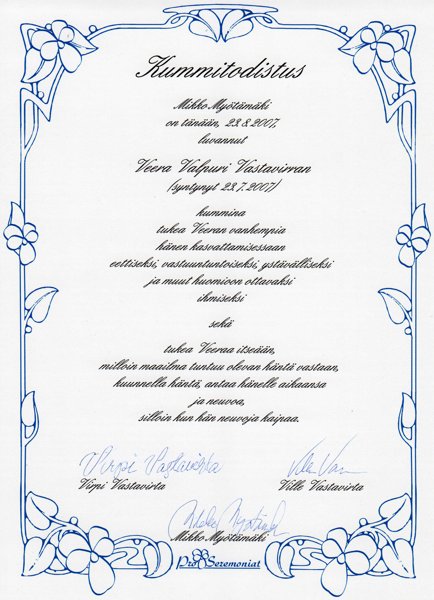 Kummitodistus
Mikko Myötämäki
on tänään, 23.8.2007,
luvannut
Veera Valpuri Vastavirran
(syntynyt 23.7.2007)
kummina
tukea Veeran vanhempia
hänen kasvattamisessaan
eettiseksi, vastuuntuntoiseksi, ystävälliseksi
ja muut huomioon ottavaksi
ihmiseksi
sekä
tukea Veeraa itseään,
milloin maailma tuntuu olevan häntä vastaan,
kuunnella häntä, antaa hänelle aikaansa
ja neuvoa,
silloin kun hän neuvoja kaipaa.
Virpi Vastavirta
Virpi Vastavirta Ville Vastavirta
Mikko Myötämäki
Pro Seremoniat